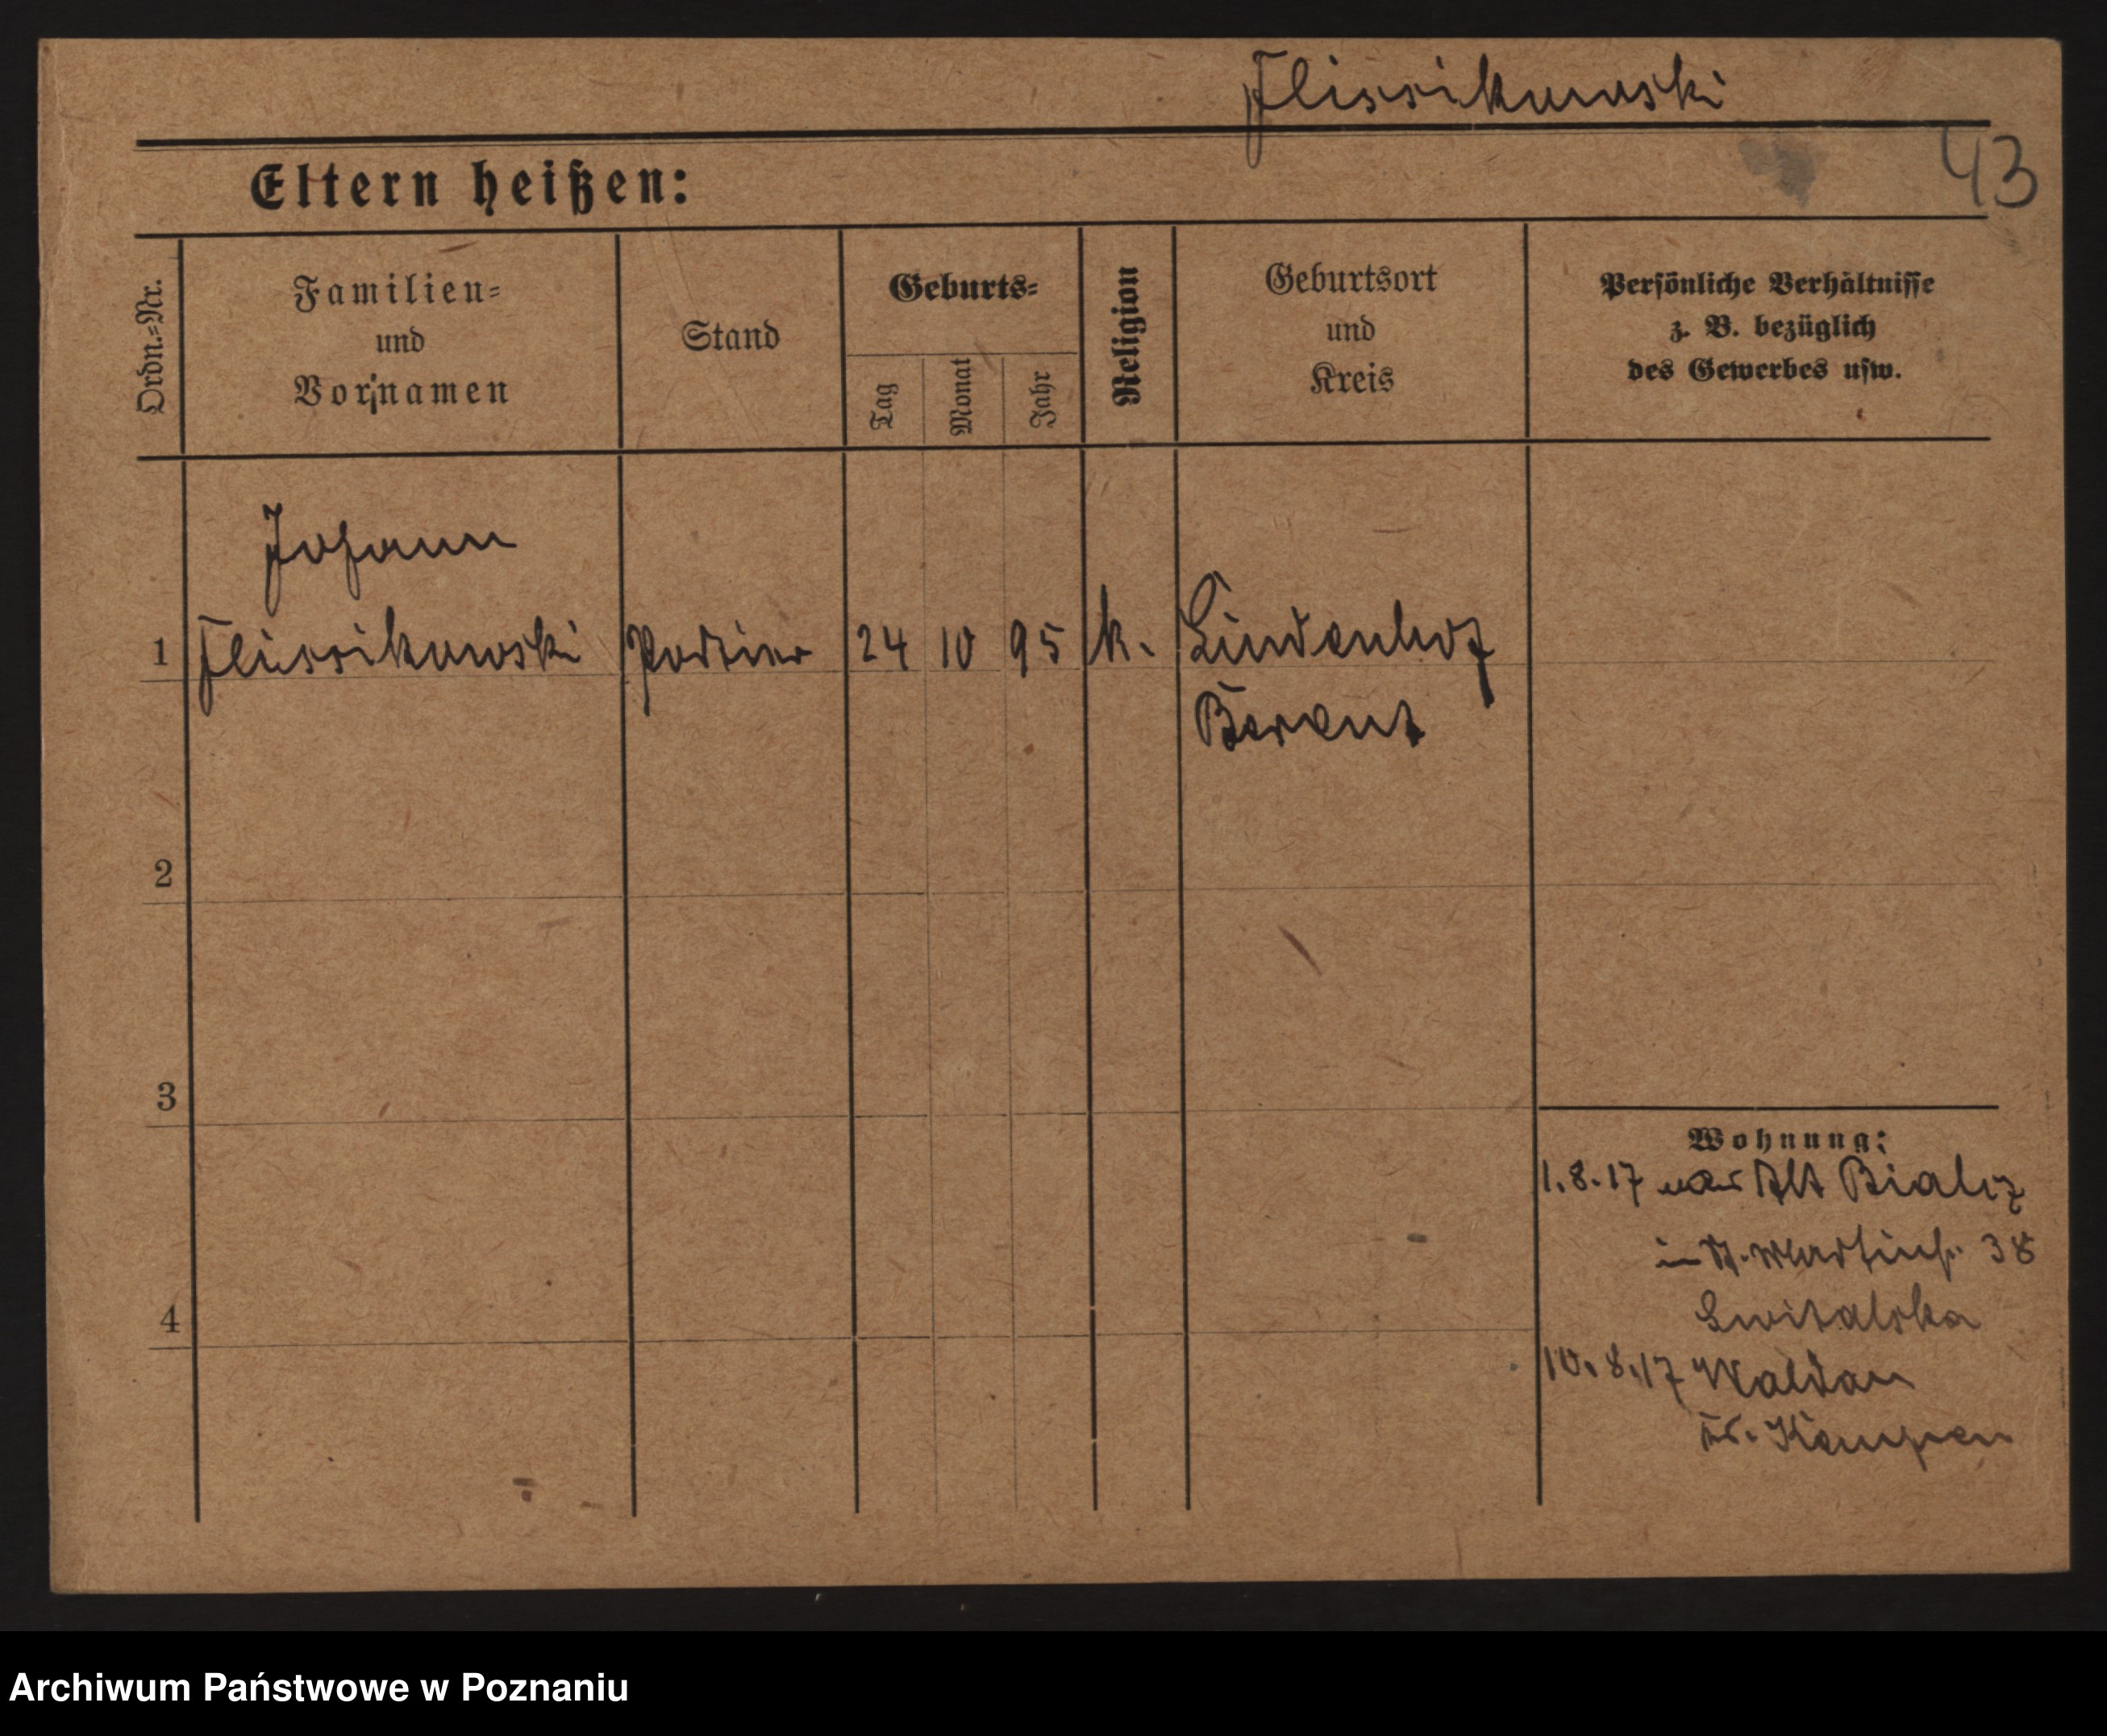 Flissikowski
43
Eltern heißen:
Ordn.=Nr.
Familien=
und
Vornamen
Stand
Geburts=
Tag
Monat
Jahr
Religion
Geburtsort
und
Kreis
Persönliche Verhältnisse
z. B. bezüglich
des Gewerbes usw.
Johann
1 Flissikowski Portier 24 10 95 k. Lindenhof
Berent
2
3
4
Wohnung:
1.8.17 Alt
in St. Martinstr. 38
Switalska
10.8.17 Waldau
Kr. Kempen
Archiwum Państwowe w Poznaniu